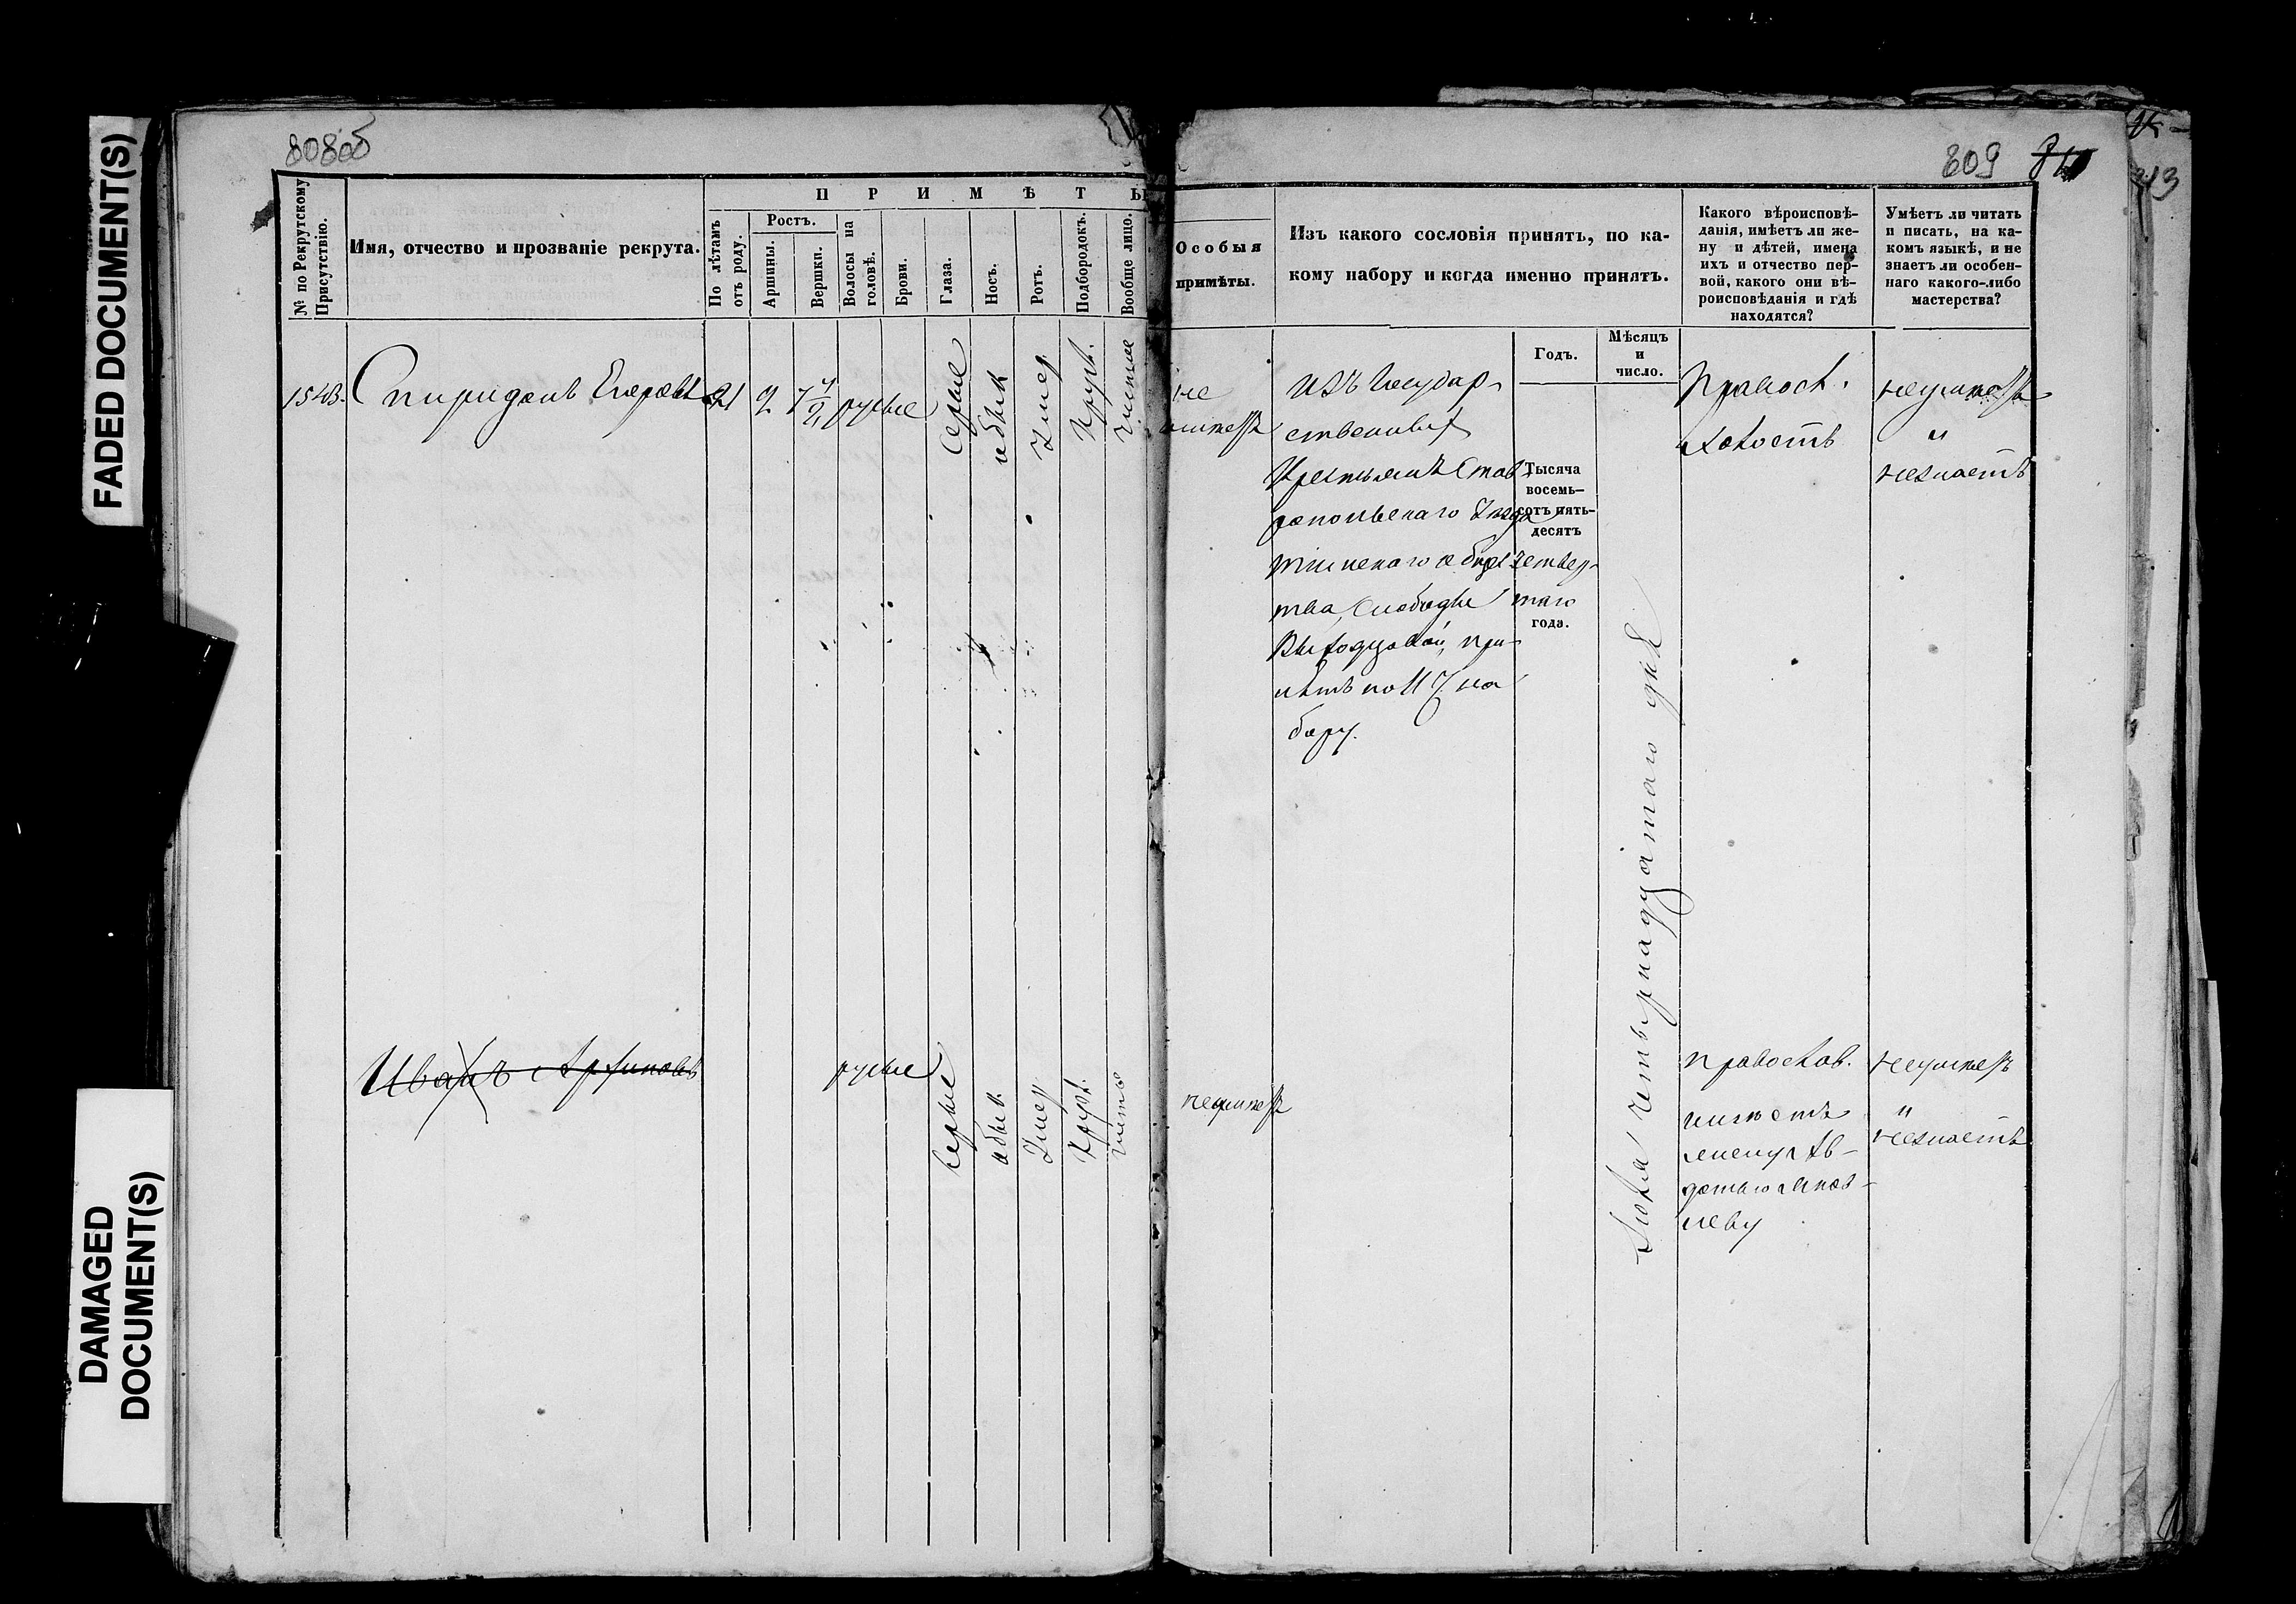 FADED DOCUMENT(S)
DAMAGED
DOCUMENT(S)
808об
809 810
213
№ по Рекрутскому
Присутствію.
Имя, отчество и прозваніе рекрута.
ПРИМѢТЫ
По лѣтамъ
отъ роду.
Ростъ.
Аршины.
Вершки.
Волосы на
головѣ.
Брови.
Глаза.
Носъ.
Ротъ.
Подбородокъ.
Вообще лицо.
Особыя
примѣты.
Изъ какого сословія принятъ, по ка-
кому набору и когда именно принятъ.
Годъ.
Мѣсяцъ
и
число.
Какого вѣроисповѣ-
данія, имѣетъ ли же-
ну и дѣтей, имена
ихъ и отчество пер-
вой, какого они вѣ-
роисповѣданія и гдѣ
находятся?
Умѣетъ ли читать
и писать, на ка-
комъ языкѣ, и не
знаетъ ли особен-
наго какого-либо
мастерства?
1543.
Спиридонъ Егоровъ
21
2
7 4/2
русые
Серые
обык
умер.
кругл.
чистое
не
имѣетъ
изъ Государ-
ственныхъ
Крестьянъ Став-
ропольскаго уезда
общес-
тва, Слободы
Выходцовой, при-
нятъ по 11 ч. на
бору.
Тысяча
восемь-
сотъ пять-
десятъ
четвер-
таго
года.
Іюля четырнадцатаго дня
Правосл.
холостъ
неумѣетъ
"
незнаетъ
Иванъ Архиповъ
русые
серые
обык.
умер
кругл.
чистое
неимѣетъ
православ.
имѣетъ
жену Ав-
дотью Яков-
леву
неумѣетъ
"
незнаетъ